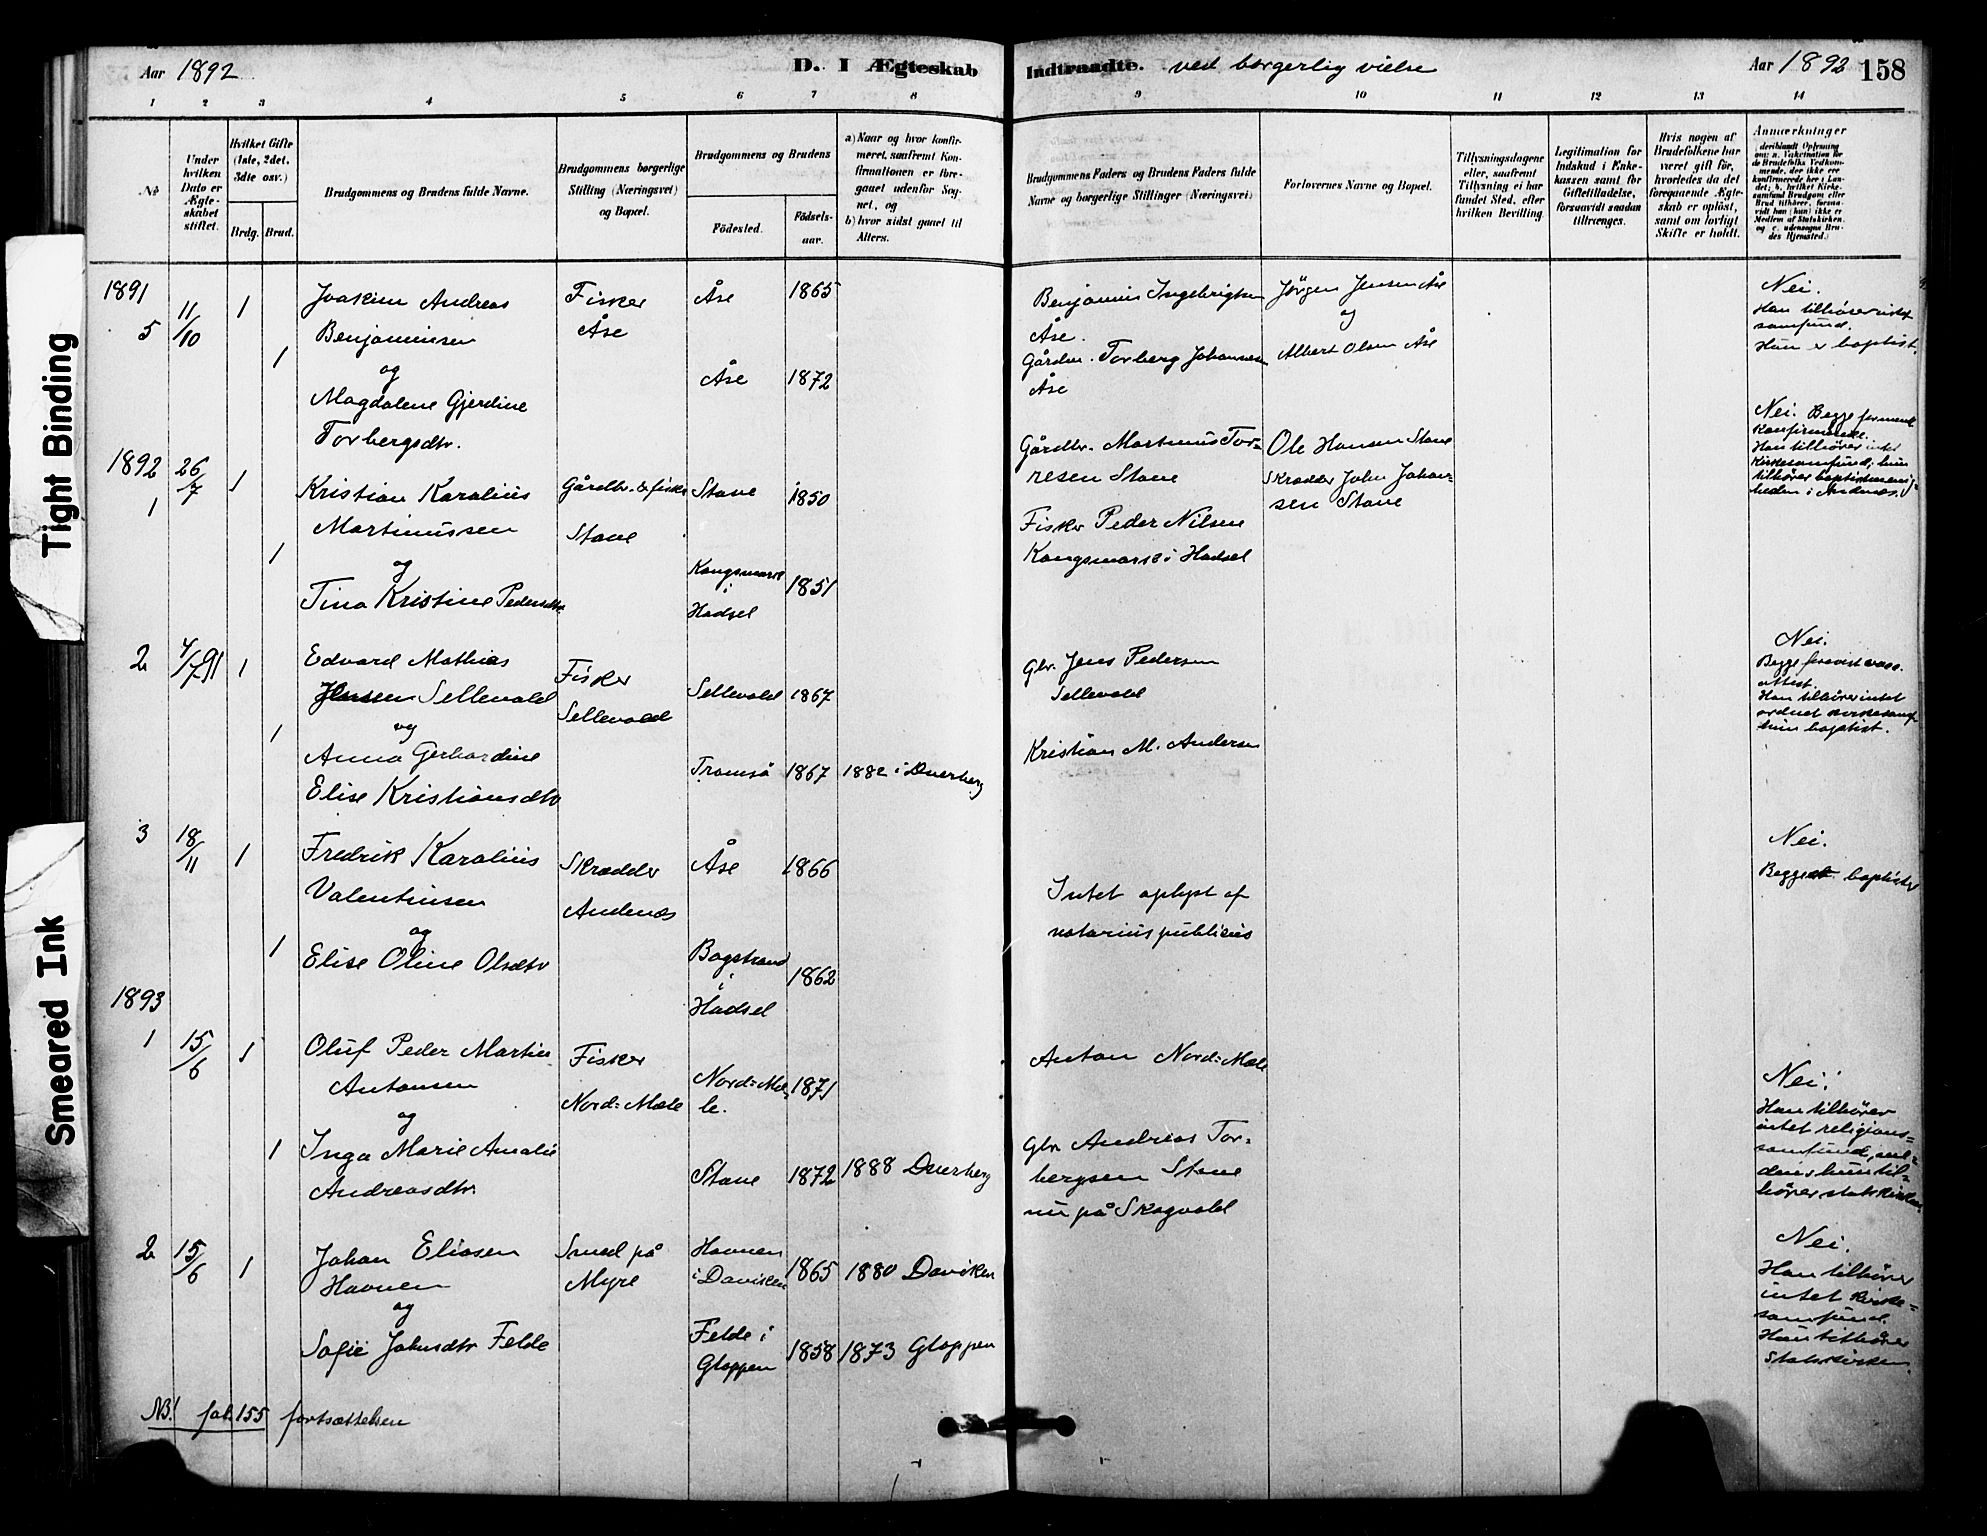 Aar 1892
D. I Ægteskab Indtraadte. ved borgerlig vielse
Aar 1892 158
1 2 3 4 5 6 7 8 9 10 11 12 13 14
No
Under hvilken Dato er Ægteskabet stiftet.
Hvilket Gifte (1ste, 2det, 3die osv.)
Brdg. Brud.
Brudgommens og Brudens fulde Navne.
Brudgommens borgerlige Stilling (Næringsvei) og Bopæl.
Brudgommens og Brudens
Födested. Födselsaar.
a) Naar og hvor konfirmeret, saafremt Konfirmationen er foregaaet udenfor Sognet, og
b) hvor sidst gaaet til Alters.
Brudgommens Faders og Brudens Faders fulde Navne og borgerlige Stillinger (Næringsvei)
Forlovernes Navne og Bopæl.
Tillysningsdagene eller, saafremt Tillysning ei har fundet Sted, efter hvilken Bevilling.
Legitimation for Indskud i Enkekassen samt for Giftetilladelse, forsaavidt saadan tiltrænges.
Hvis nogen af Brudefolkene har været gift før, hvorledes da det foregaaende Ægteskab er oplöst, samt om lovligt Skifte er holdt.
Anmærkninger
(deriblandt Oplysning om: a. Vakcination for de Brudefolks Vedkommende, der ikke ere konfirmerede her i Landet; b. hvilket Kirkesamfund Brudgom eller Brud tilhører, forsaavidt han (hun) ikke er Medlem af Statskirken, og c. udensogns Brudes Hjemsted.)
1891
5 11/10 1
Joakim Andreas Benjaminsen
og
1 Magdalene Gjerdine Torbergsdtr.
Fisker Åse
Åse 1865
Åse 1872
Benjamin Ingebrigtsen Åse.
Gårdbr. Torberg Johannesen Åse
Jörgen Jensen Åse
og
Albert Olsen Åse
Nei.
Han tilhører intet samfund.
Hun er baptist.
1892
1 26/7 1
Kristian Karolius Martinussen
og
1 Tina Kristine Pedersdtr
Gårdbr. & fisker Stave
Stave 1850
Kongsmark i Hadsel 1851
Gårdbr. Martinus Torresen Stave
Fisker Peder Nilsen Kongsmark i Hadsel
Ole Hansen Stave
Skrædder John Johansen Stave
Nei. Begge
Han tilhører intet kirkesamfund; hun tilhører baptistmenigheden i Andenæs.
2 4/7 91 1
Edvard Mathias Jensen Sellevold
og
1 Anna Gerhardine Elise Kristiansdtr
Fisker Sellevold
Sellevold 1867
Tromsö 1867 1882 i Dverberg
Gbr. Jens Pedersen Sellevold
Kristian M. Andersen
Nei.
Begge forevist vacc. attest.
Han tilhører intet ordnet kirkesamf. hun baptist.
3 18/11 1
Fredrik Karolius Valentinsen
og
1 Elise Oline Olsdtr
Skrædder Andenæs
Åse 1866
Bogstrand i Hadsel 1862
Intet oplyst af notarius publicus
Nei.
Begge baptister
1893
1 15/6 1
Oluf Peder Martin Antonsen
og
1 Inga Marie Amalie Andreasdtr.
Fisker Nord=Mæle
Nord=Mæle. 1871
Stave 1872 1888 Dverberg
Anton Nord=Mæle
Gbr. Andreas Torbergsen Stave nu på Skogvold
Nei.
Han tilhører intet religions=samfund, medens hun tilhører statskirken
2 15/6 1
Johan Eliasen Havnen
og
Sofie Johnsdtr Felde
Smed på Myre
Havnen i Daviken 1865 1880 Daviken
Felde i Gloppen 1858 1873 Gloppen
Nei.
Han tilhører intet kirke=samfund.
Hun tilhører Statskirken.
NB! fol. 155 fortsættelsen
Tight Binding
Smeared Ink